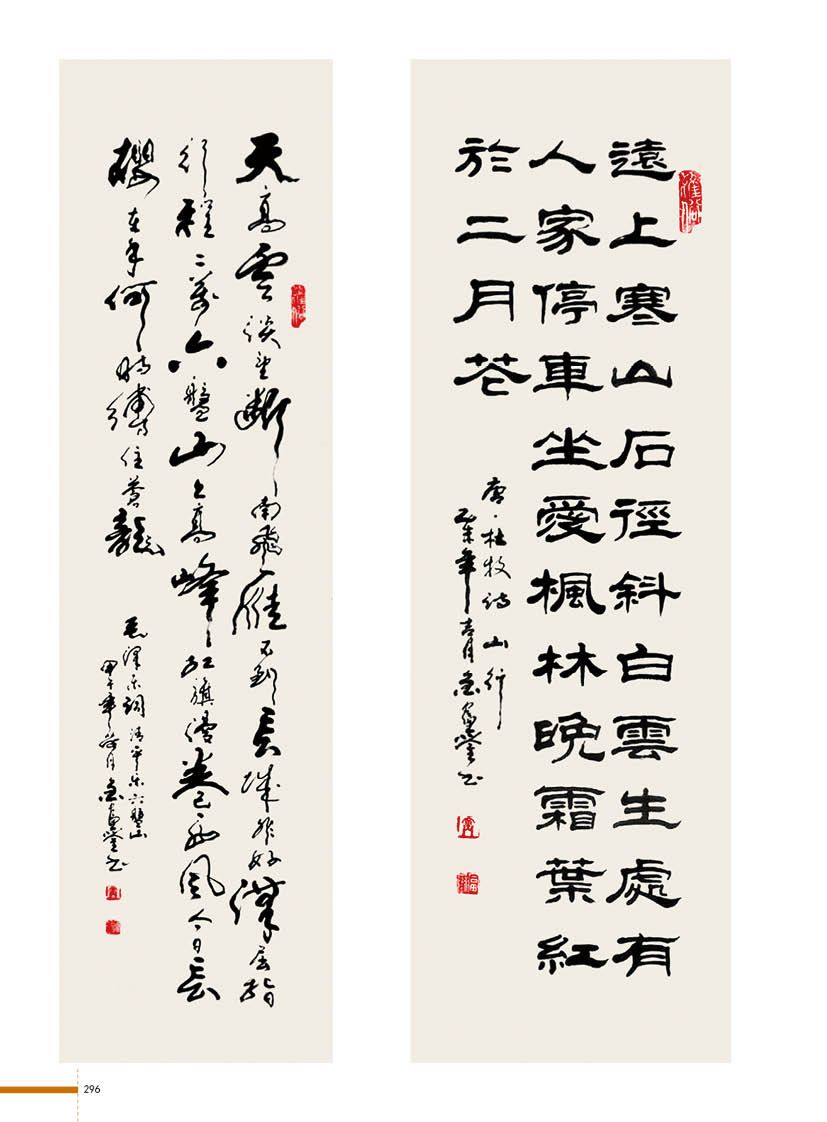 遠上寒山石徑斜白雲生處有
人家停車坐愛楓林晚霜葉紅
於二月花
唐·杜牧詩山行
乙未年
天高雲淡望斷南飛雁不到長城非好漢屈指
行程二萬六盤山上高峰紅旗漫卷西風今日長
纓在手何時縛住蒼龍
毛澤東詞清平樂六盤山
甲午年荷月
296